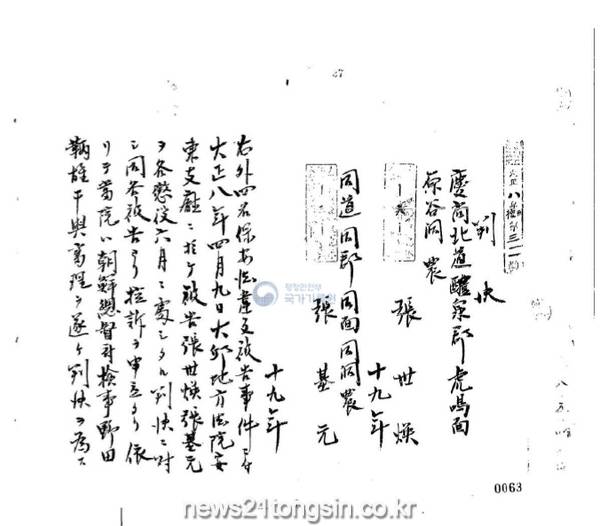 判決
慶尚北道醴泉郡虎鳴面
原谷洞 農
張世煥
十九年
同道同郡同面同洞 農
張基元
十九年
右外四名保安法違反被告事件ニ付
大正八年四月九日大邱地方法院安
東支廳ニ於テ被告張世煥張基元
ヲ各懲役六月ニ處シタル判決ニ対
シ同各被告ヨリ控訴ヲ申立タリ依
リテ當院ハ朝鮮総督府検事野田
鞆雄干與審理ヲ遂ケ判決ヲ為ス
행정안전부
국가기록원
0063
news24tongsin.co.kr